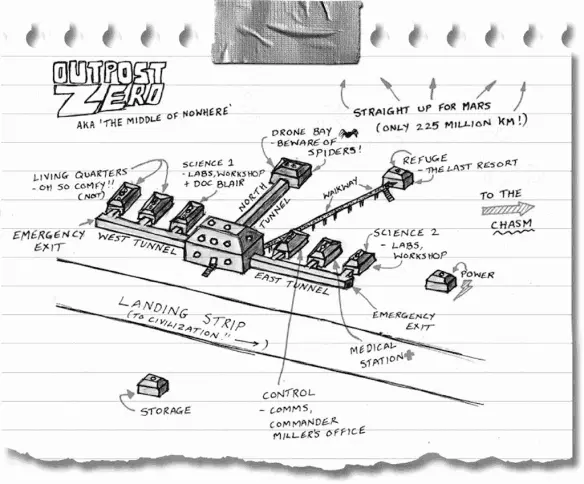 OUTPOST
ZERO
AKA 'THE MIDDLE OF NOWHERE'
STRAIGHT UP FOR MARS
(ONLY 225 MILLION KM!)
DRONE BAY
- BEWARE OF
SPIDERS!
LIVING QUARTERS
- OH SO COMFY!!
(NOT)
SCIENCE 1
- LABS, WORKSHOP
+ DOC BLAIR
REFUGE
- THE LAST RESORT
NORTH
TUNNEL
WALKWAY
TO THE
CHASM
EMERGENCY
EXIT
WEST TUNNEL
SCIENCE 2
- LABS,
WORKSHOP
EAST TUNNEL
POWER
LANDING STRIP
(TO CIVILIZATION!! → )
EMERGENCY
EXIT
MEDICAL
STATION
STORAGE
CONTROL
- COMMS,
COMMANDER
MILLER'S OFFICE